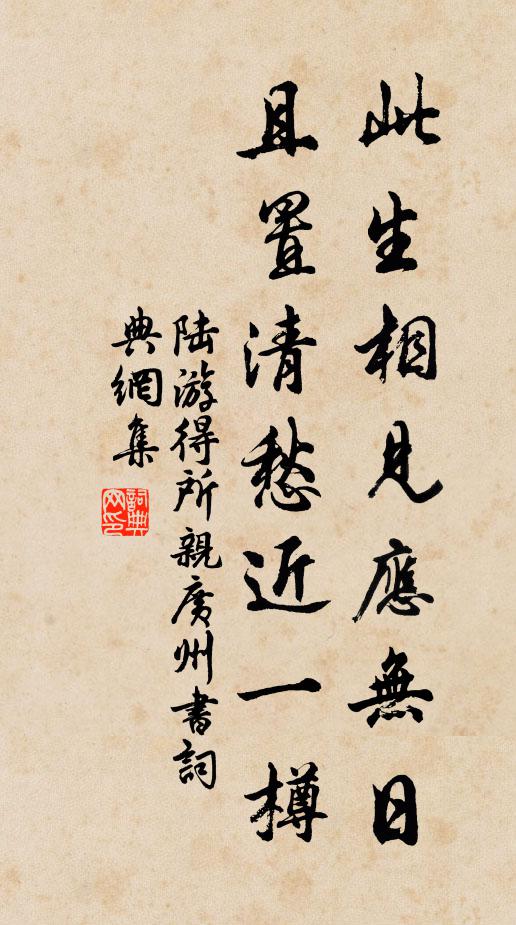 此生相見應無日
且置清愁近一樽
陸游得所親廣州書詞
典網集
詞典網印